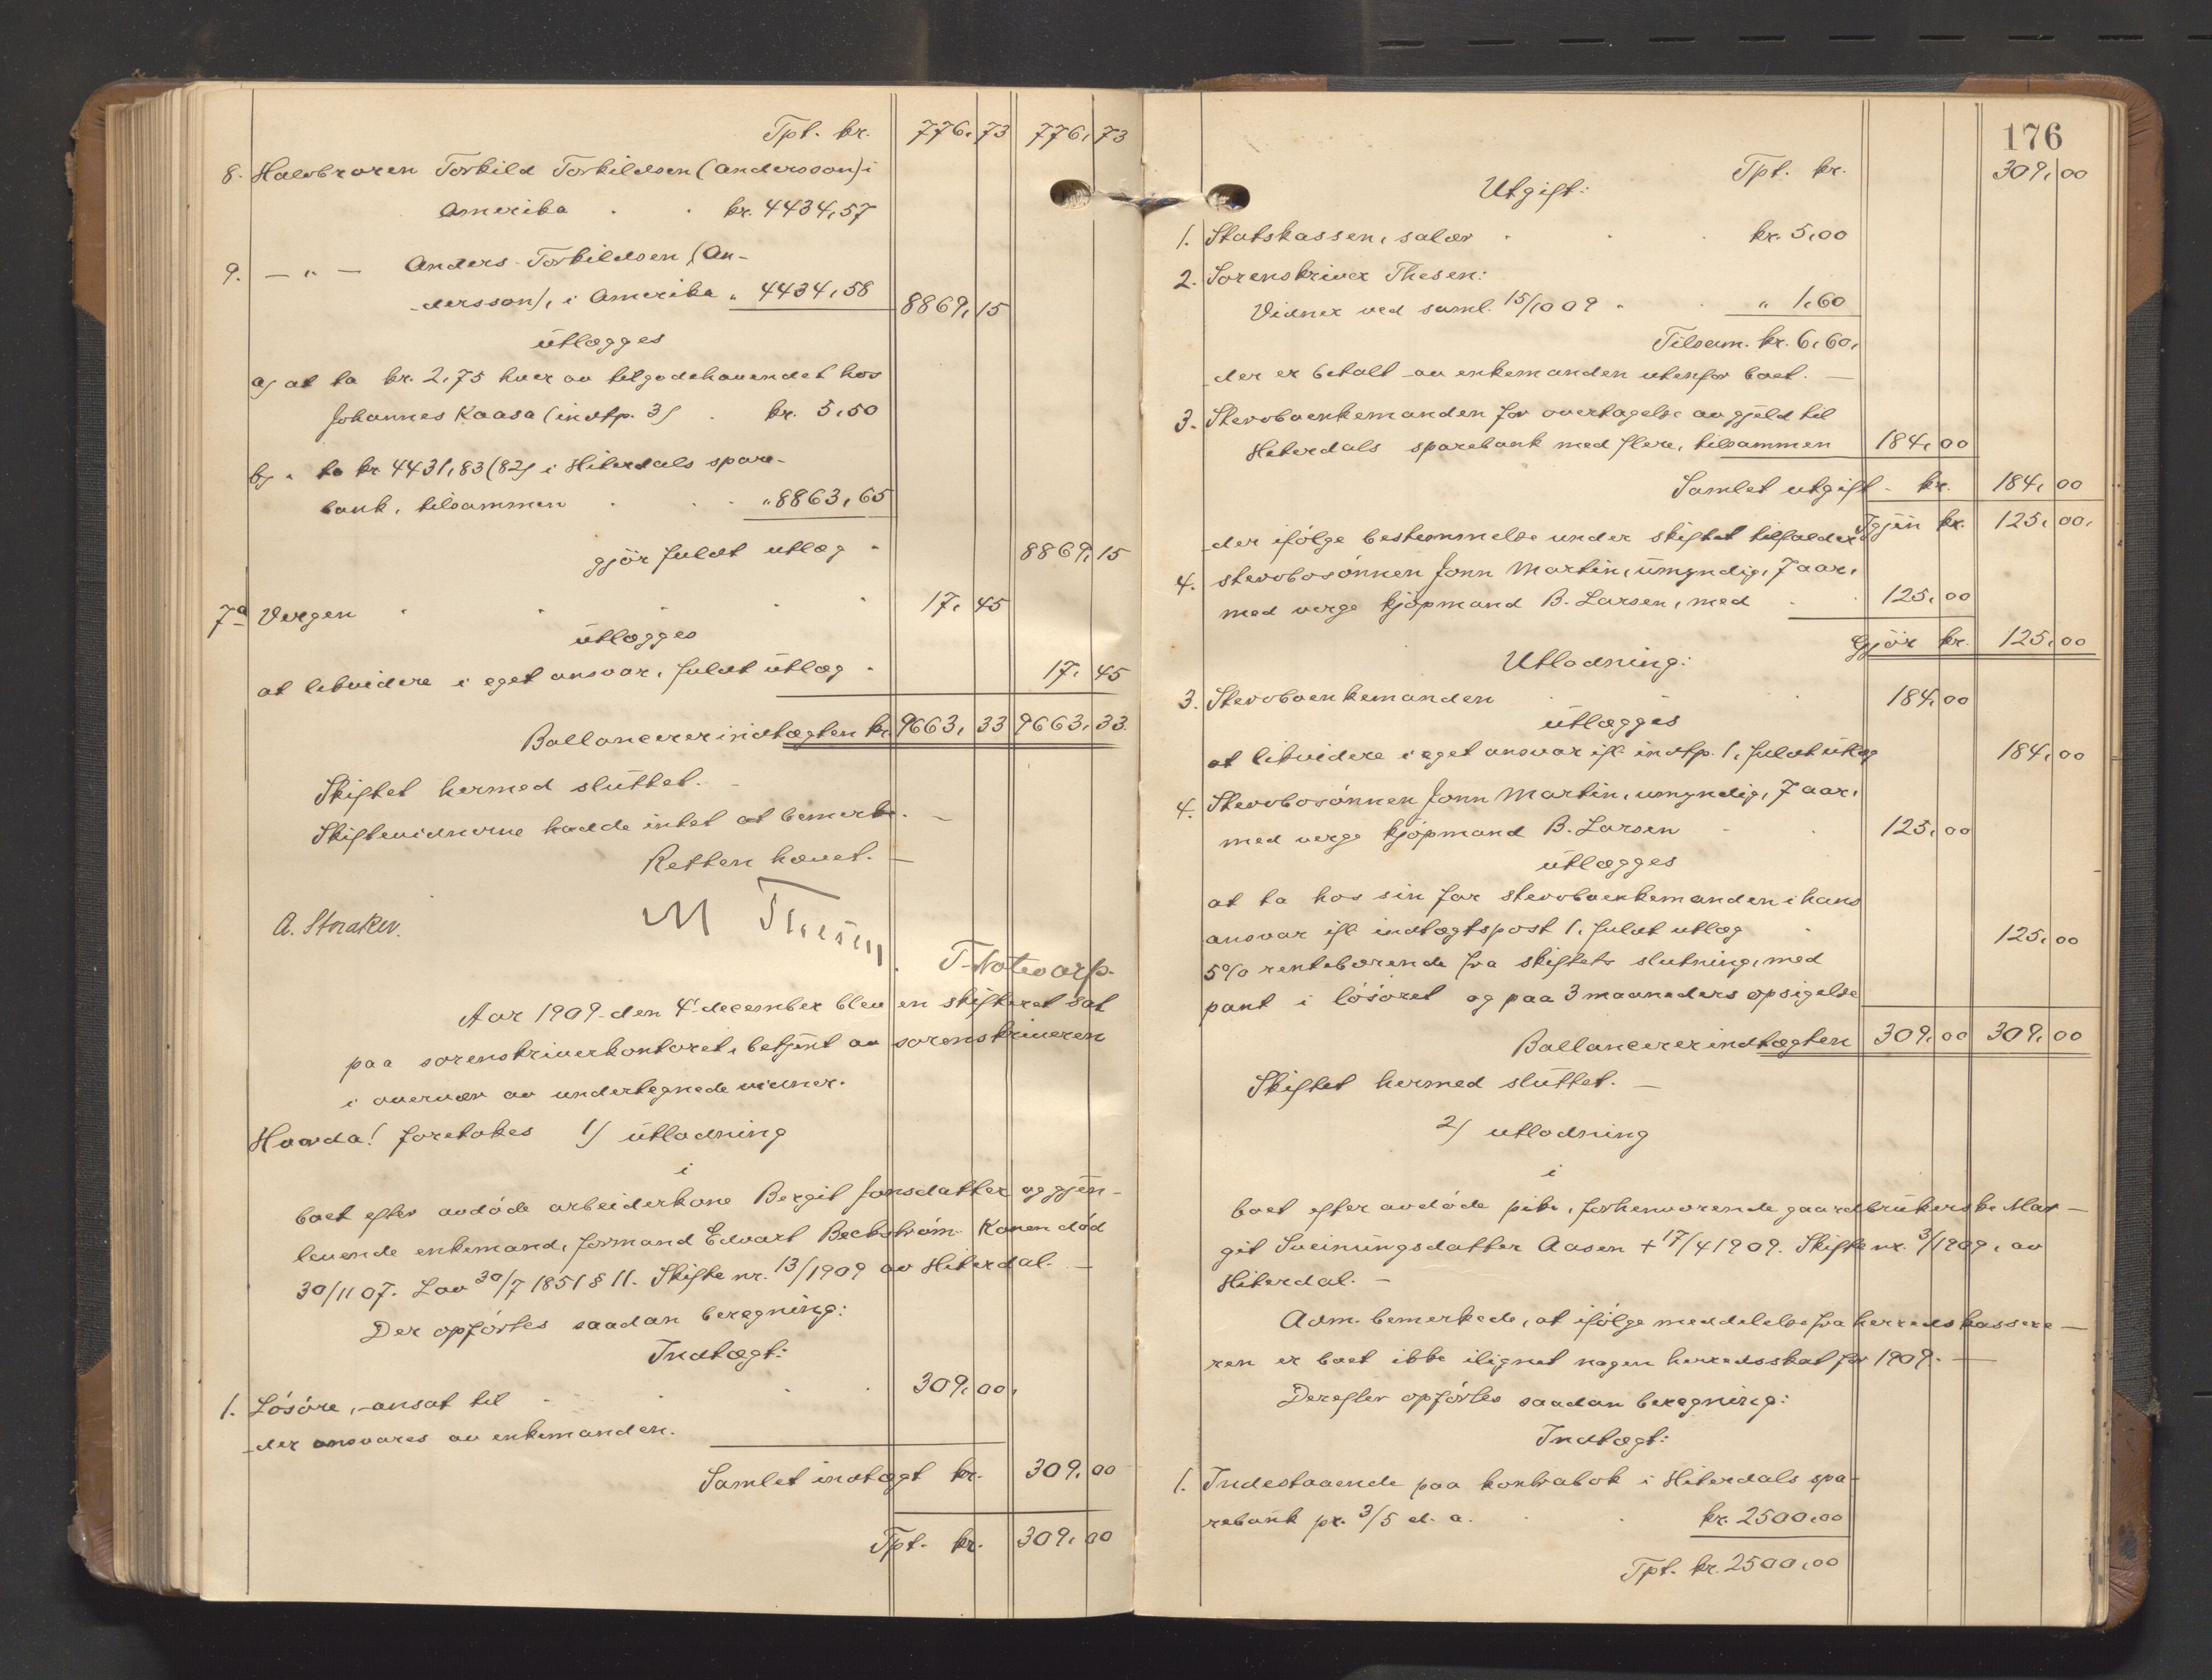 Tpt. kr. 776,73 776,73
8. Halvbroren Torkild Torkildsen (Andersson) i
Amerika . . kr. 4434,57
9. — " — Anders Torkildsen (An-
dersson), i Amerika " 4434,58 8869,15
utlægges
a) at ta kr. 2,75 hver av tilgodehavendet hos
Johannes Kaasa (indtp. 3) . kr. 5,50
b) " ta kr 4431,83 (82) i Hiterdals spare-
bank, tilsammen . . . " 8863,65
gjør fuldt utlæg . 8869,15
7a Vergen . . . . . 17,45
utlægges
at likvidere i eget ansvar, fuldt utlæg . 17,45
Ballancerer indtægten kr. 9663,33 9663,33
Skiftet hermed sluttet. —
Skiftevidnerne hadde intet at bemerke. —
Retten hævet. —
A. Straker. M Thesen
T. Notevarp.
Aar 1909 den 4' december blev en skifteret sat
paa sorenskriverkontoret, betjent av sorenskriveren
i overvær av undertegnede vidner.
Hvorda! foretokes 1) utlodning
i
boet efter avdøde arbeiderkone Bergit Jonsdatter og gjen-
levende enkemand, formand Edvart Beckstrøm. Konen død
30/11 07. Lov 30/7 1851 § 11. Skifte nr. 13/1909 av Hiterdal. —
Der opførtes saadan beregning:
Indtægt:
1. Løsøre, ansat til . . . . 309,00,
der ansvares av enkemanden.
Samlet indtægt kr. 309,00
Tpt. kr. 309,00
176
Tpt. kr. 309,00
Utgift:
1. Statskassen, salær . . . kr. 5,00
2. Sorenskriver Thesen:
Vidner ved saml. 15/10 09 . . " 1,60
Tilsam. kr. 6,60,
der er betalt av enkemanden utenfor boet. —
3. Stervboenkemanden for overtagelse av gjeld til
Hiterdals sparebank med flere, tilsammen 184,00
Samlet utgift . kr. 184,00
Igjen kr. 125,00,
der ifølge bestemmelse under skiftet tilfalder
4. stervbosønnen Jonn Martin, umyndig, 7 aar,
med verge kjøpmand B. Larsen, med . . 125,00
Gjør kr. 125,00
Utlodning:
3. Stervboenkemanden . . . 184,00
utlægges
at likvidere i eget ansvar ifl. indtp. 1, fuldt utlæg 184,00
4. Stervbosønnen Jonn Martin, umyndig, 7 aar,
med verge kjøpmand B. Larsen . . 125,00
utlægges
at ta hos sin far stervboenkemanden i hans
ansvar ifl. indtægtspost 1, fuldt utlæg . 125,00
5% rentebærende fra skiftets slutning, med
pant i løsøret og paa 3 maaneders opsigelse
Ballancerer indtægten 309,00 309,00
Skiftet hermed sluttet. —
2) utlodning
i
boet efter avdøde pike, forhenværende gaardbrukerske Mar-
git Sveinungsdatter Aasen + 17/4 1909. Skifte nr. 3/1909, av
Hiterdal. —
Adm. bemerkede, at ifølge meddelelse fra herredskassere-
ren er boet ikke ilignet nogen herredsskat for 1909. —
Derefter opførtes saadan beregning:
Indtægt:
1. Indestaaende paa kontrabok i Hiterdals spa-
rebank pr. 3/5 d. a. . . kr. 2500,00
Tpt. kr. 2500,00